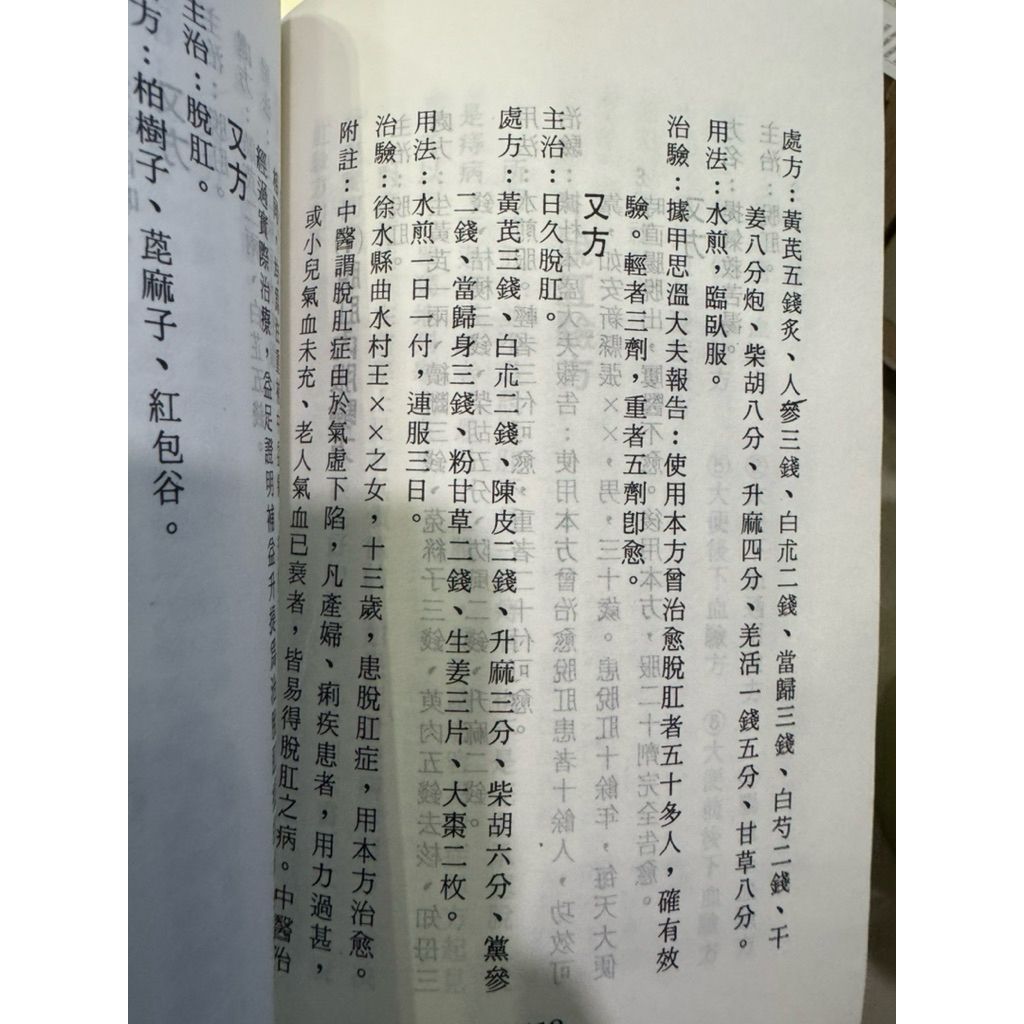 處方：黃芪五錢炙、人參三錢、白朮二錢、當歸三錢、白芍二錢、干
姜八分炮、柴胡八分、升麻四分、羌活一錢五分、甘草八分。
用法：水煎，臨臥服。
治驗：據甲思溫大夫報告：使用本方曾治愈脫肛者五十多人，確有效
驗。輕者三劑，重者五劑卽愈。
又方
主治：日久脫肛。
處方：黃芪三錢、白朮二錢、陳皮二錢、升麻三分、柴胡六分、黨參
二錢、當歸身三錢、粉甘草二錢、生姜三片、大棗二枚。
用法：水煎一日一付，連服三日。
治驗：徐水縣曲水村王××之女，十三歲，患脫肛症，用本方治愈。
附註：中醫謂脫肛症由於氣虛下陷，凡產婦、痢疾患者，用力過甚，
或小兒氣血未充、老人氣血已衰者，皆易得脫肛之病。中醫治
經過實際治療，益足證明補益升
又方
主治：脫肛。
方：柏樹子、蓖麻子、紅包谷。